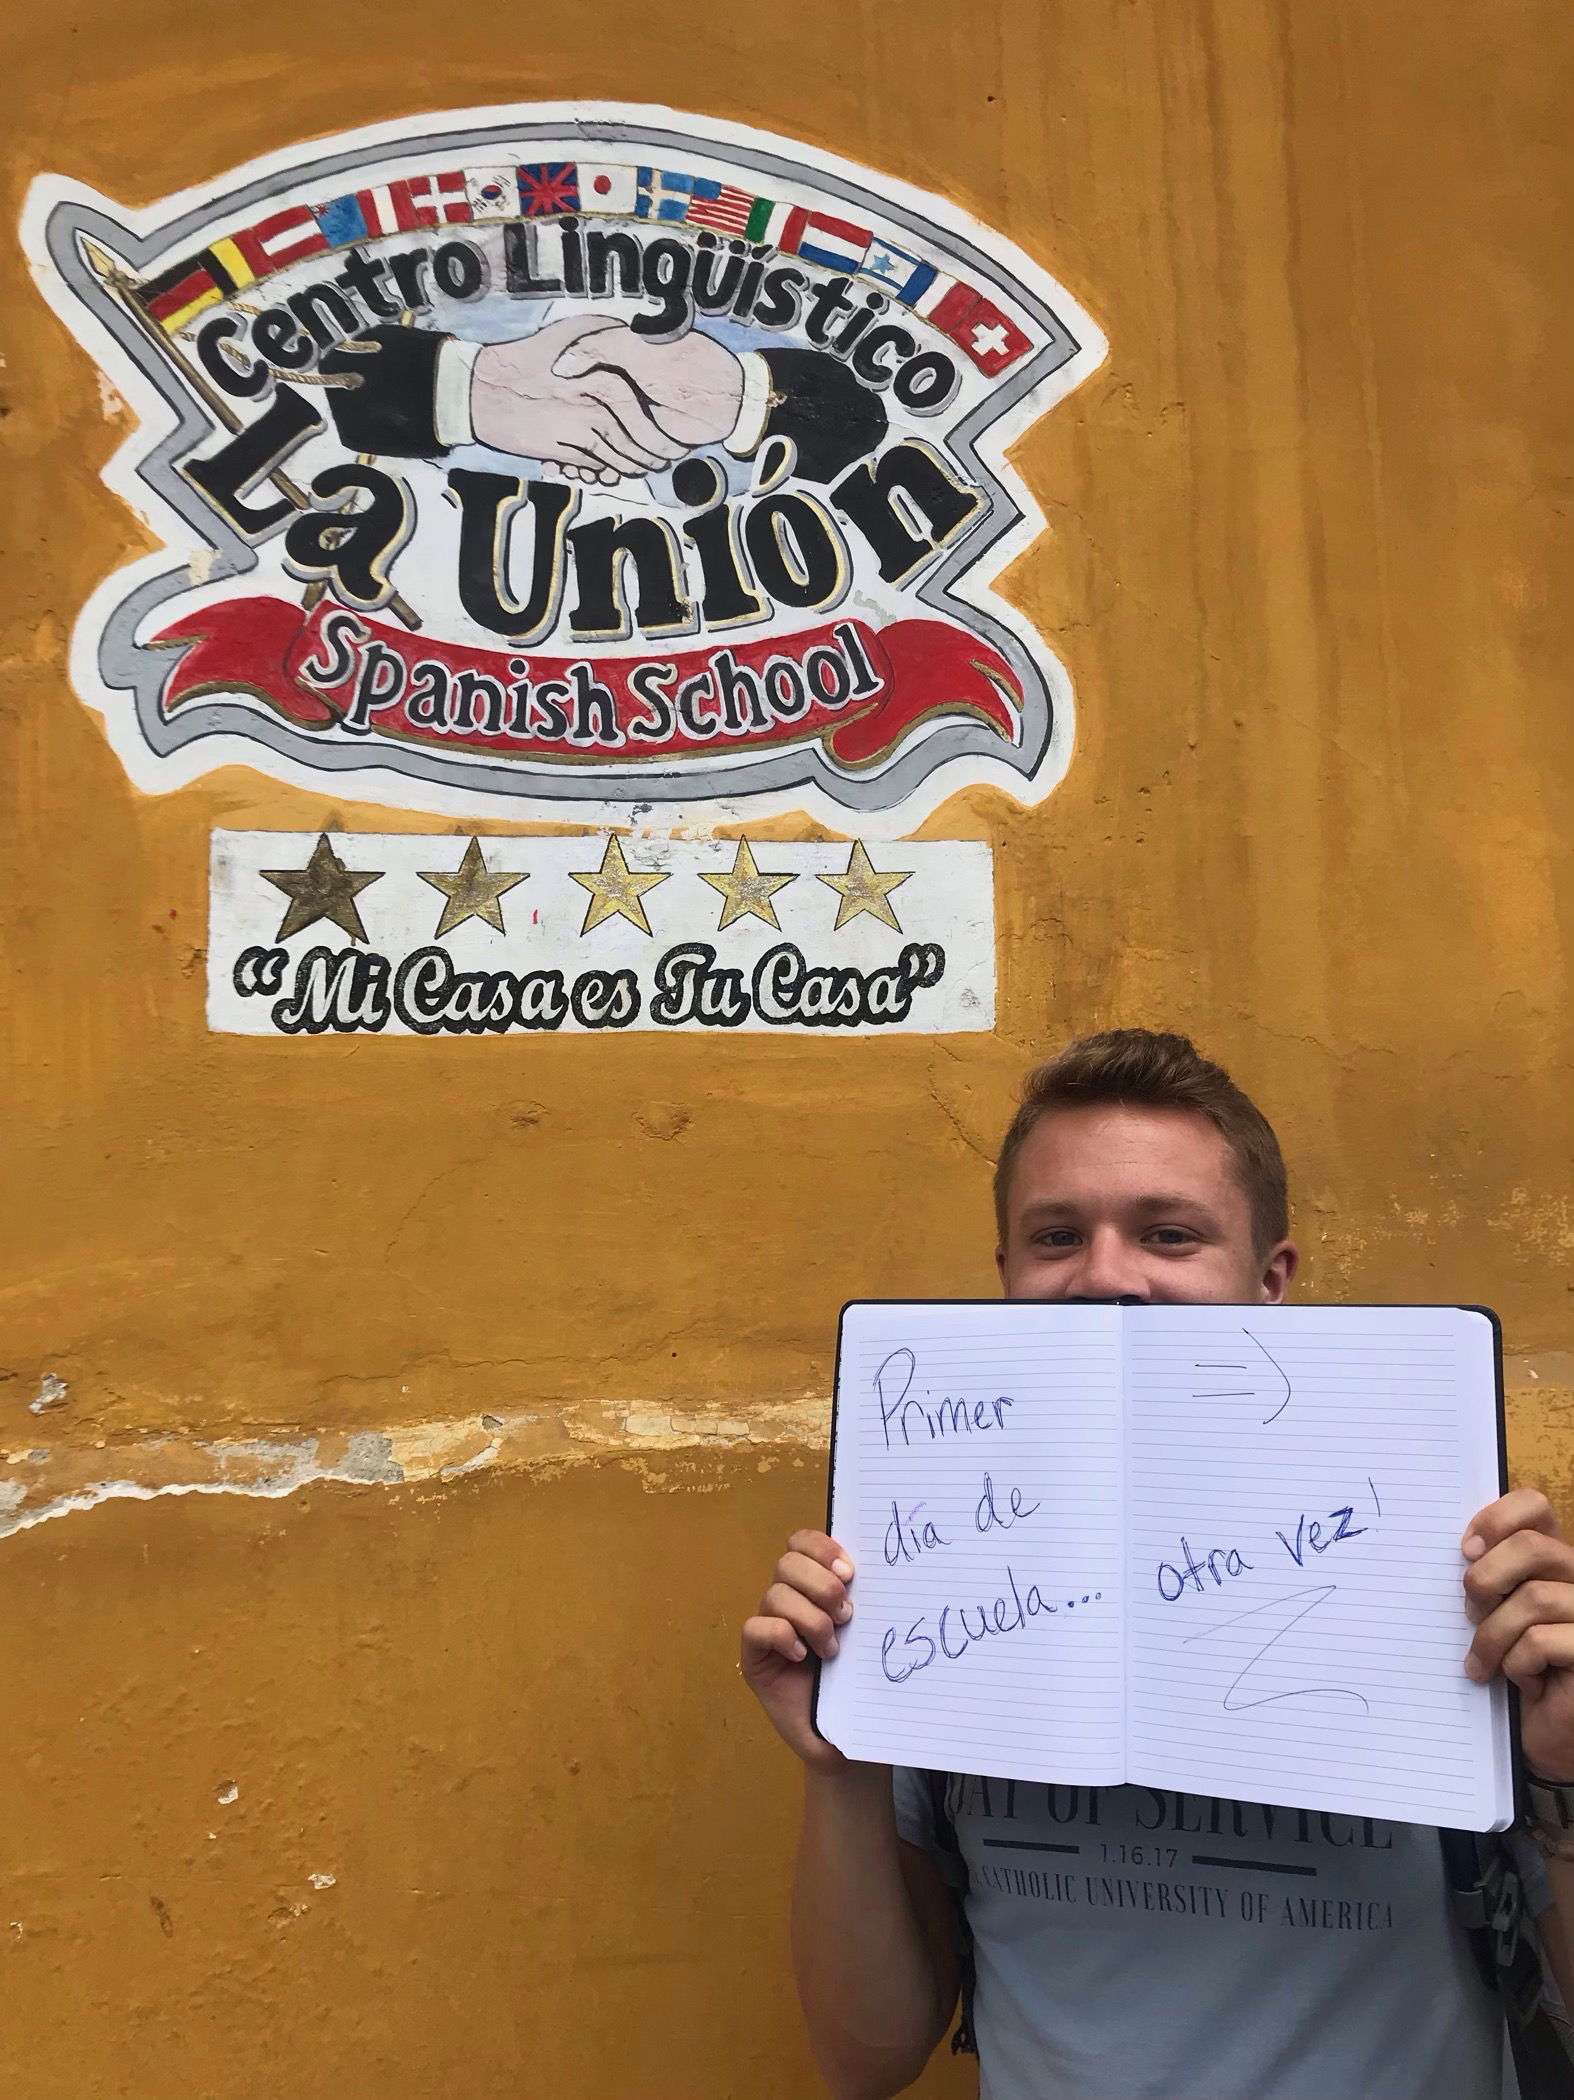 Centro Lingüístico
La Unión
Spanish School
"Mi Casa es Tu Casa"
Primer
día de
escuela...
=)
otra vez!
DAY OF SERVICE
1.16.17
CATHOLIC UNIVERSITY OF AMERICA